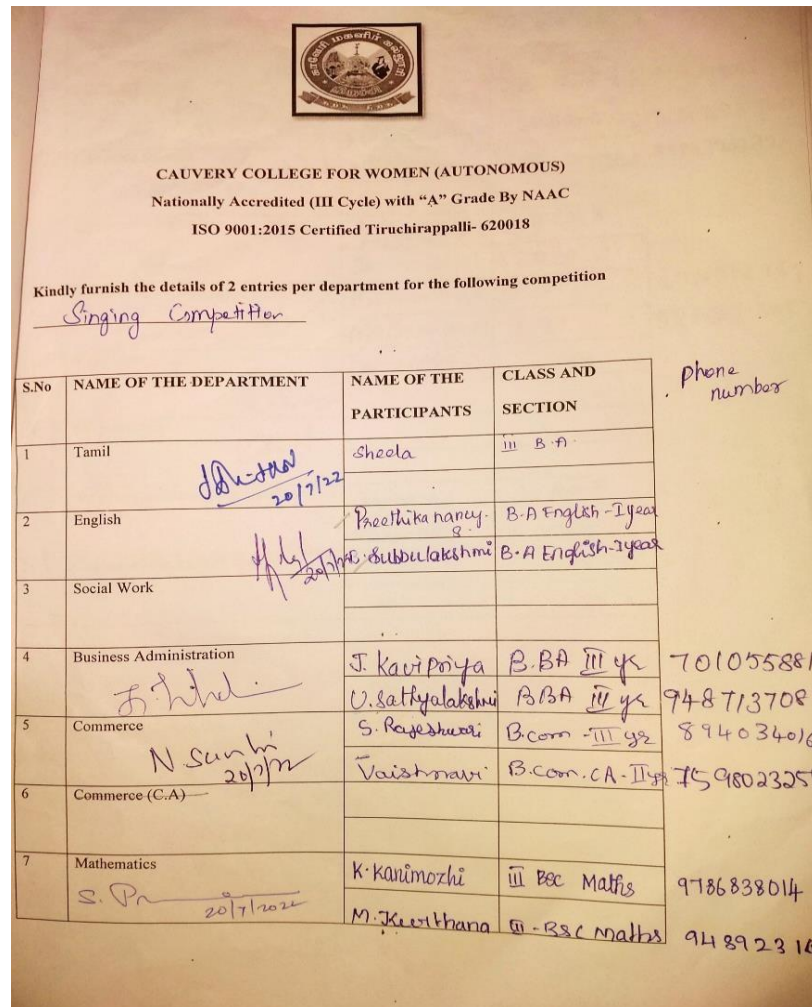 காவேரி மகளிர் கல்லூரி
CAUVERY COLLEGE FOR WOMEN (AUTONOMOUS)
Nationally Accredited (III Cycle) with “A” Grade By NAAC
ISO 9001:2015 Certified Tiruchirappalli- 620018
Kindly furnish the details of 2 entries per department for the following competition
Singing Competition
S.No NAME OF THE DEPARTMENT NAME OF THE PARTICIPANTS CLASS AND SECTION phone number
1 Tamil Sheela III B.A.
20/7/22
2 English Preethika nancy. B.A English-I year
20/7/22 Subbulakshmi B.A English-I year
3 Social Work
4 Business Administration J. Kavipriya B.BA III yr 701055881
U.Sathyalakshmi BBA III yr 948713708
5 Commerce S. Rajeshwari B.com -III yr 894034016
N. 20/7/22 Vaishnavi B.com.CA-II yr 759802325
6 Commerce (C.A)
7 Mathematics K.Kanimozhi III BSC Maths 9786838014
S. 20/7/2022 M.Keerthana III-BSC Maths 94892316